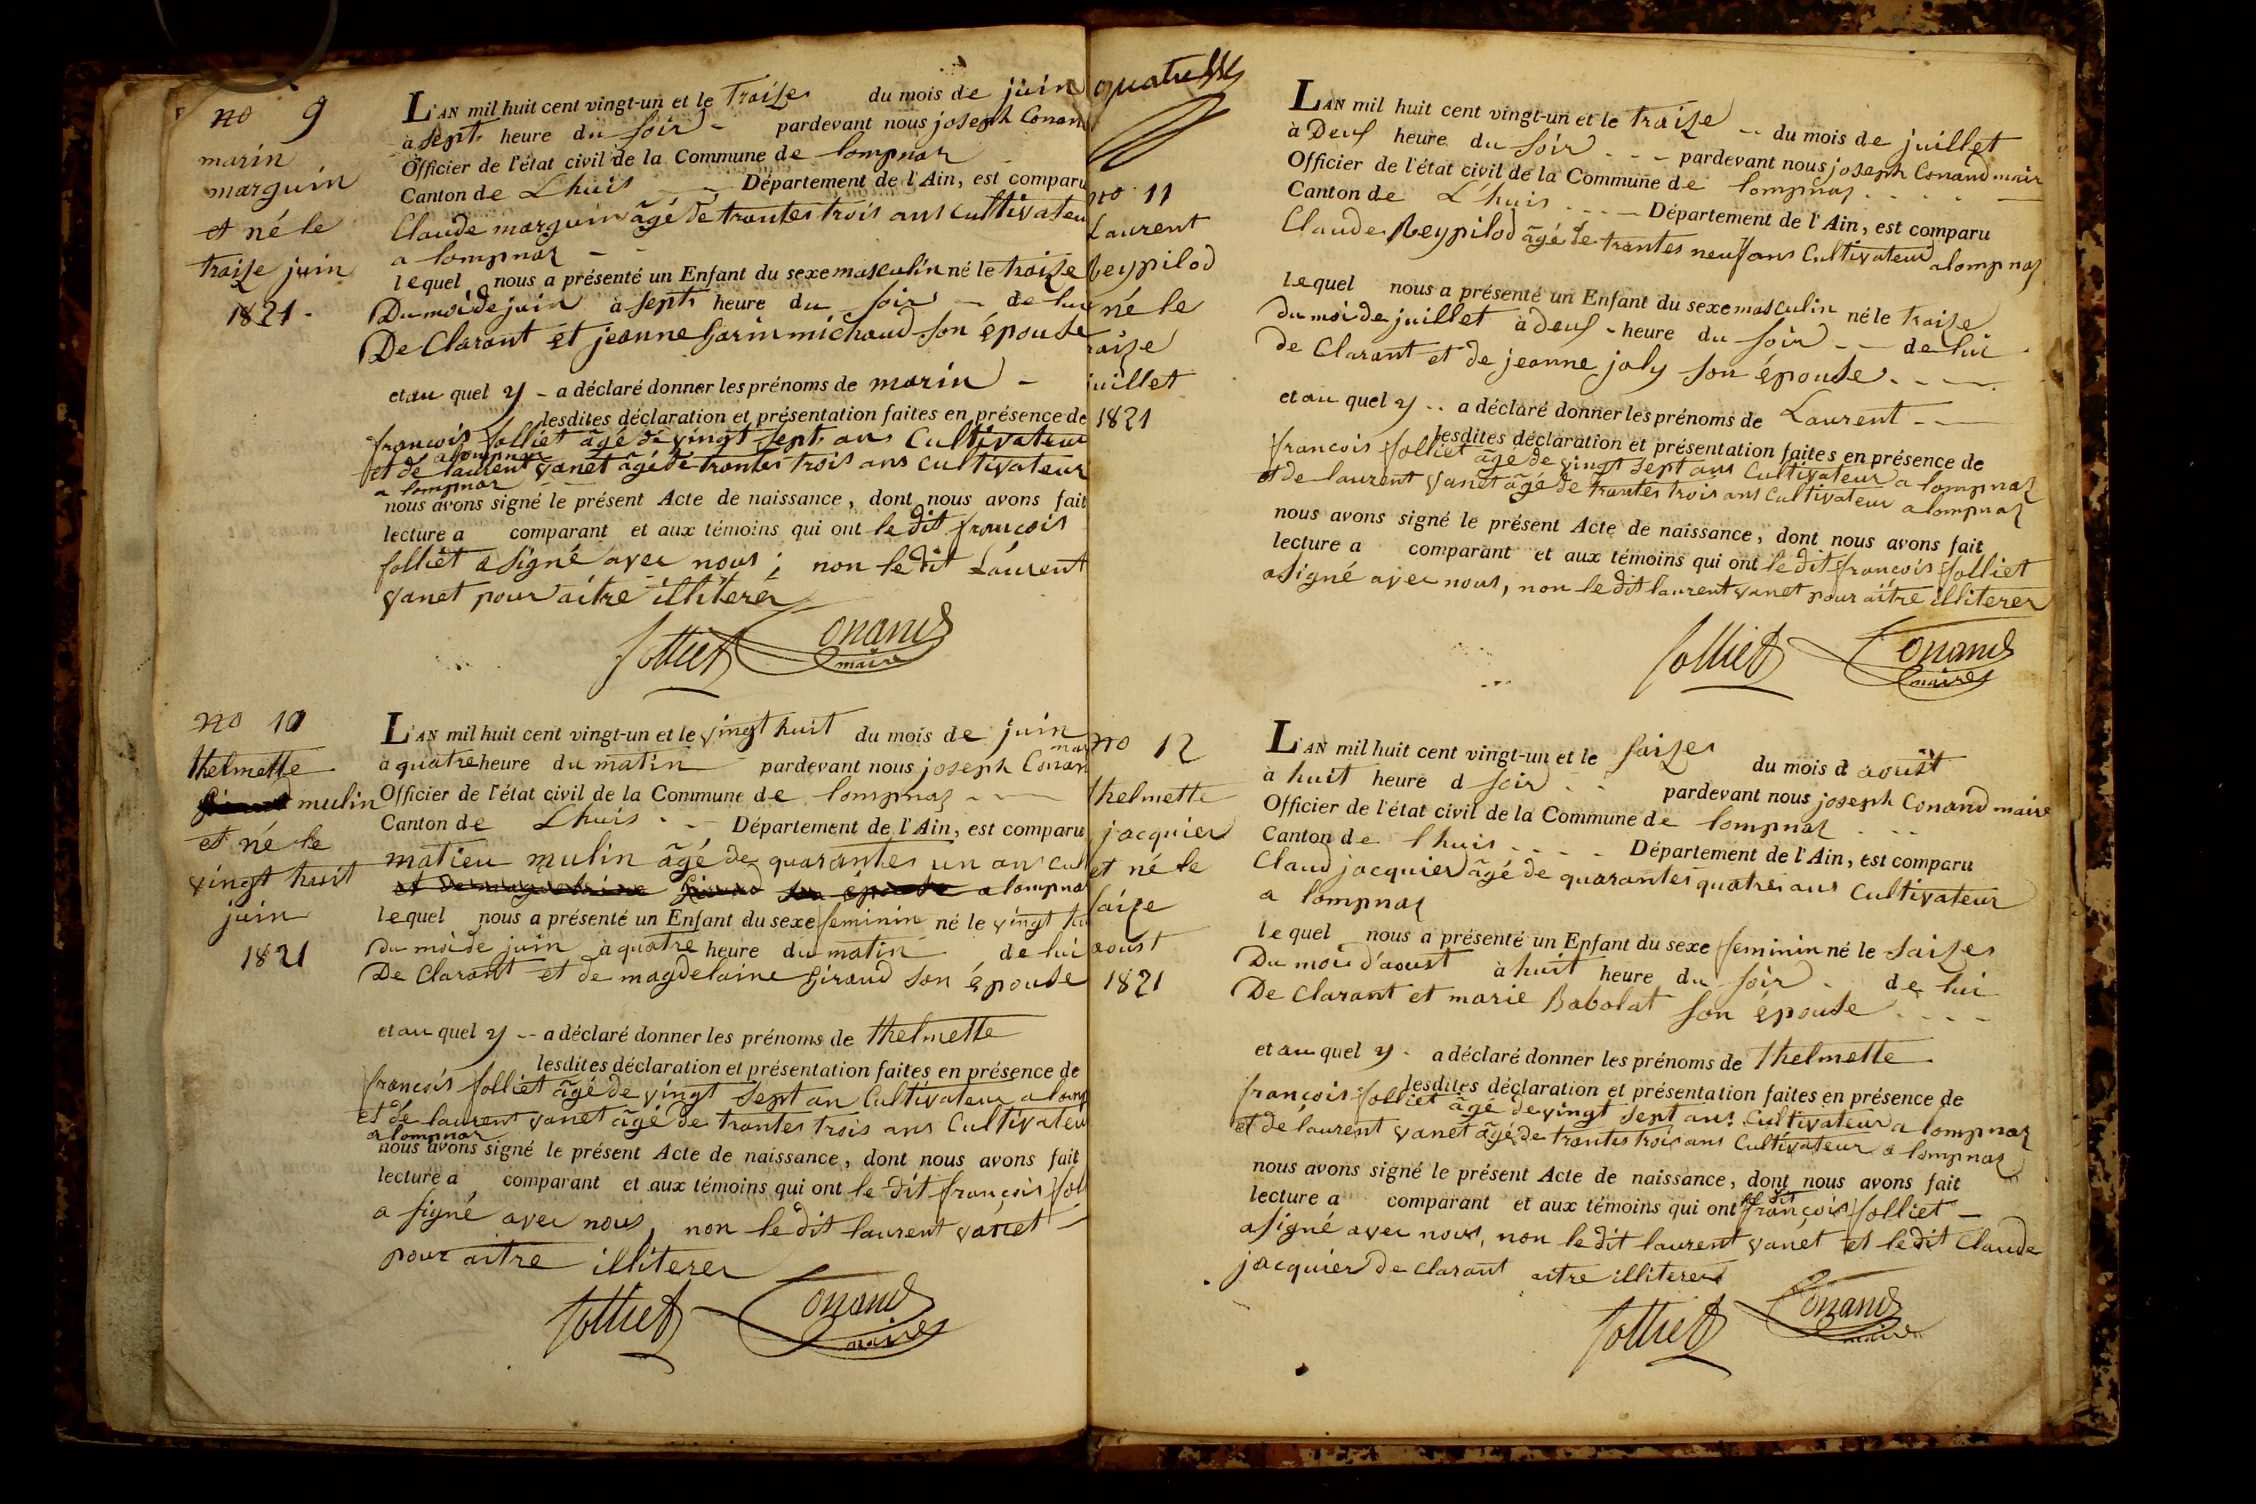 no 9
marin
marguin
et né le
traize juin
1821.
L'AN mil huit cent vingt-un et le traize du mois de juin
à sept heure du soir pardevant nous joseph Conan
Officier de l'état civil de la Commune de lompnaz
Canton de Lhuis Département de l'Ain, est comparu
Claude marguin âgé de trantes trois ans cultivateu
a lompnaz
lequel nous a présenté un Enfant du sexe masculin né le traize
Du moi de juin à sept heure du soir de lui
De Clarant et jeanne Garin michaud son épouse
et au quel y a déclaré donner les prénoms de marin
lesdites déclaration et présentation faites en présence de
françois folliet âgé de vingt sept ans Cultivateur
a lompnaz
et de laurent vanet âgé de trantes trois ans cultivateur
a lompnaz
nous avons signé le présent Acte de naissance, dont nous avons fait
lecture a comparant et aux témoins qui ont le dit françois
folliet a signé avec nous; non le dit Laurent
vanet pour aitre illiterer
folliet Conand
maire
no 10
thelmette
mulin
et né le
vingt huit
juin
1821
L'AN mil huit cent vingt-un et le vingt huit du mois de juin
à quatre heure du matin pardevant nous joseph Conan
mai
Officier de l'état civil de la Commune de lompnaz
Canton de Lhuis Département de l'Ain, est comparu
matieu mulin âgé de quarantes un ans cul
et de magdelaine Giraud son épouse a lompnaz
lequel nous a présenté un Enfant du sexe feminin né le vingt hu
Du moi de juin à quatre heure du matin de lui
De Clarant et de magdelaine Giraud son épouse
et au quel y a déclaré donner les prénoms de thelmette
lesdites déclaration et présentation faites en présence de
françois folliet âgé de vingt sept an Cultivateur a lomp
et de laurent vanet âgé de trantes trois ans Cultivateu
a lompnaz
nous avons signé le présent Acte de naissance, dont nous avons fait
lecture a comparant et aux témoins qui ont le dit françois fol
a signé avec nous, non le dit laurent vanet
pour aitre illiterer
folliet Conand
maire
quatre
no 11
Laurent
Reypilod
né le
raize
juillet
1821
L'AN mil huit cent vingt-un et le traize du mois de juillet
à Deux heure du soir pardevant nous joseph Conand mair
Officier de l'état civil de la Commune de lompnaz
Canton de L'huis Département de l'Ain, est comparu
Claude Reypilod âgé de trantes neuf ans Cultivateur a lompnaz
lequel nous a présenté un Enfant du sexe masculin né le traize
du moi de juillet à deux heure du soir de lui
de Clarant et de jeanne joly son épouse
et au quel y a déclaré donner les prénoms de Laurent
lesdites déclaration et présentation faites en présence de
françois folliet âgé de vingt sept ans Cultivateur a lompnaz
et de laurent vanet âgé de trantes trois ans Cultivateur a lompnaz
nous avons signé le présent Acte de naissance, dont nous avons fait
lecture a comparant et aux témoins qui ont le dit françois folliet
a signé avec nous, non le dit laurent vanet pour aitre illiterer
folliet Conand
maire
no 12
thelmette
jacquier
et né le
saize
aoust
1821
L'AN mil huit cent vingt-un et le saizes du mois d aoust
à huit heure d soir pardevant nous joseph Conand maire
Officier de l'état civil de la Commune de lompnaz
Canton de lhuis Département de l'Ain, est comparu
Claud jacquier âgé de quarantes quatres ans Cultivateur
a lompnaz
lequel nous a présenté un Enfant du sexe feminin né le saizes
Du moi d'aoust à huit heure du soir de lui
De Clarant et marie Babolat son épouse
et au quel y a déclaré donner les prénoms de thelmette
lesdites déclaration et présentation faites en présence de
françois folliet âgé de vingt sept ans Cultivateur a lompnaz
et de laurent vanet âgé de trantes trois ans Cultivateur a lompnaz
nous avons signé le présent Acte de naissance, dont nous avons fait
lecture a comparant et aux témoins qui ont le dit françois folliet
a signé avec nous, non le dit laurent vanet et le dit Claude
jacquier de clarant aitre illiterer
folliet Conand
maire